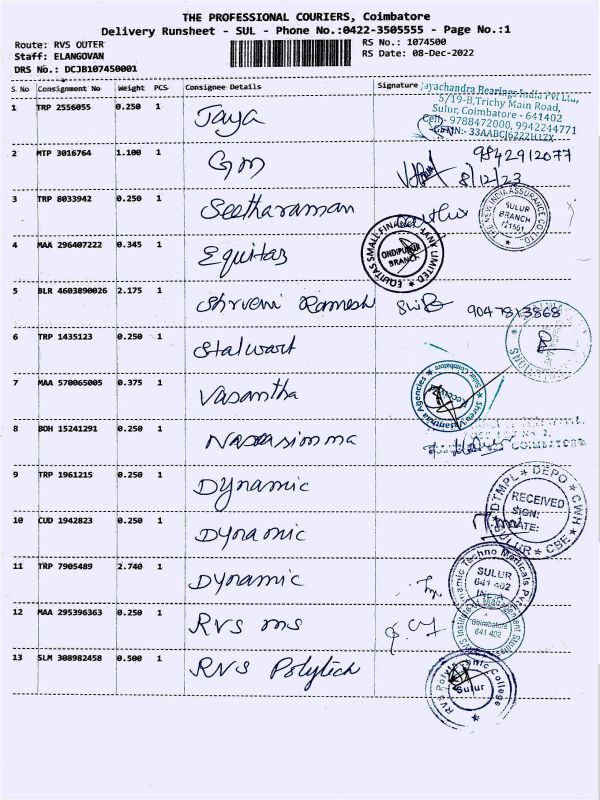 THE PROFESSIONAL COURIERS, Coimbatore
Delivery Runsheet - SUL - Phone No.:0422-3505555 - Page No.:1
Route: RVS OUTER
RS No.: 1074500
Staff: ELANGOVAN
RS Date: 08-Dec-2022
DRS No.: DCJB107450001
S No Consignment No Weight PCS Consignee Details Signature
Jayachandra Bearings India Pvt Ltd.,
5/19-B, Trichy Main Road,
Sulur, Coimbatore - 641402
Cell: 9788472000, 9942244771
1 TRP 2556055 0.250 1 Jaya
2 MTP 3016764 1.100 1 GM 9842912077
8/12/23
3 TRP 8033942 0.250 1 Seetharaman
THE NEW INDIA ASSURANCE CO LTD
SULUR
BRANCH
4 MAA 296407222 0.345 1 Equitas
EQUITAS SMALL FINANCE BANK LIMITED
ONDIPUDUR
BRANCH
5 BLR 4603890026 2.175 1 Shrveni Ramesh
6 TRP 1435123 0.250 1 Stalwart
7 MAA 570065005 0.375 1 Vasantha
Shree Vasantha Agencies
8 BOH 15241291 0.250 1 Narasimma
COIMBATORE
9 TRP 1961215 0.250 1 Dynamic
DTMPL DEPO CWH
RECEIVED
SIGN:
DATE:
SULUR CBE
10 CUD 1942823 0.250 1 Dynamic
11 TRP 7905489 2.740 1 Dynamic
Dynamic Techno Medicals Pvt
SULUR
641 402
12 MAA 295396363 0.250 1 RVS ms
Coimbatore
641 402
13 SLM 308982458 0.500 1 RVS Polytech
RVS Polytechnic College
Sulur